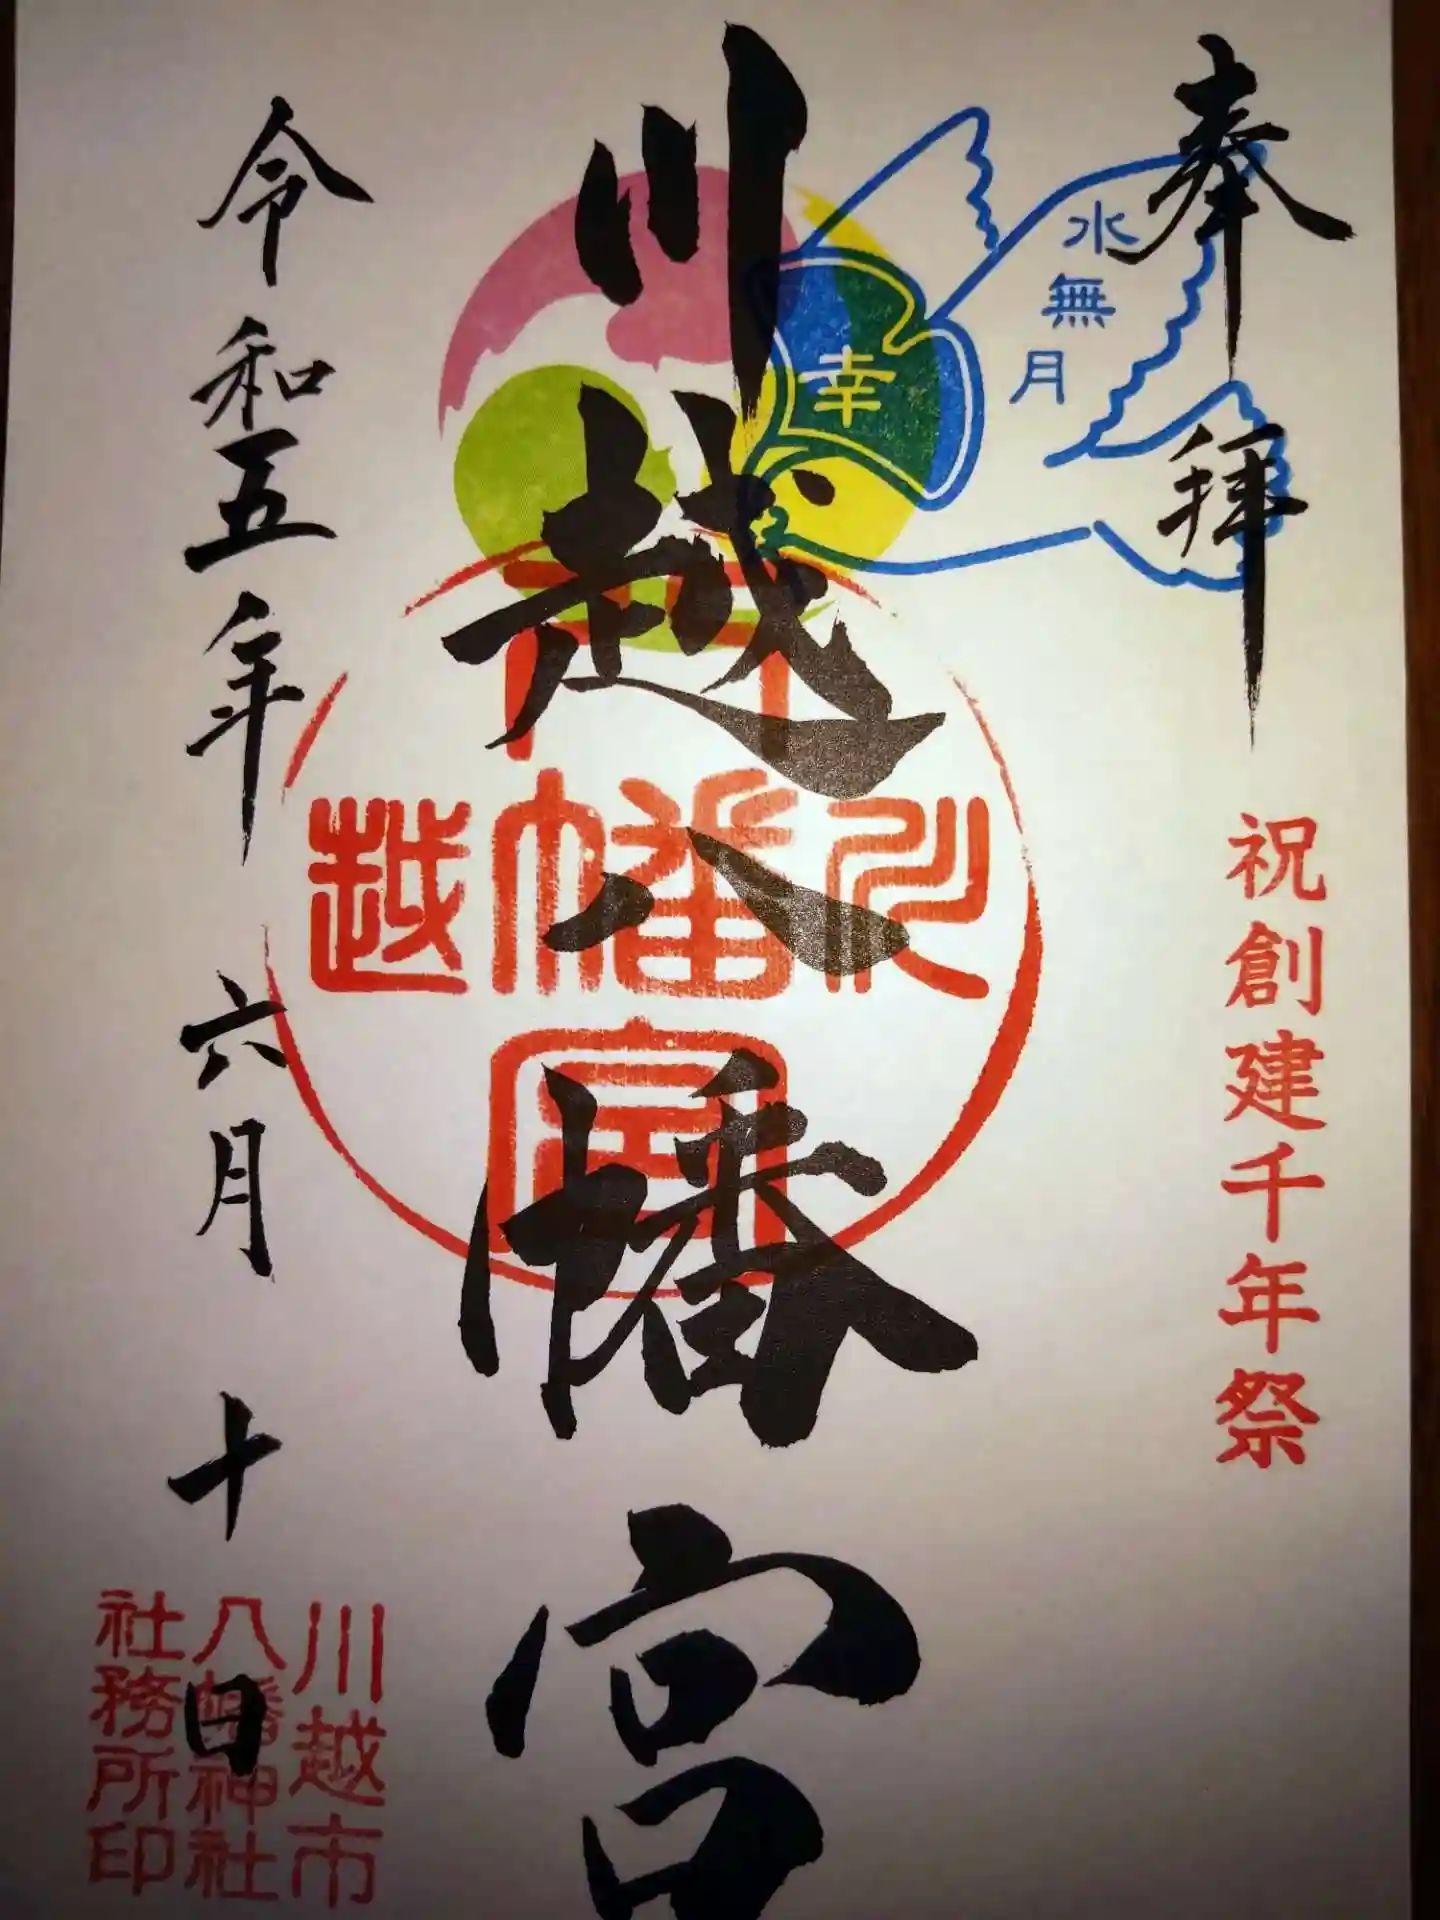 奉拝
祝創建千年祭
水無月
幸
川越八幡宮
川越八幡宮
令和五年六月十日
川越市
八幡神社
社務所印